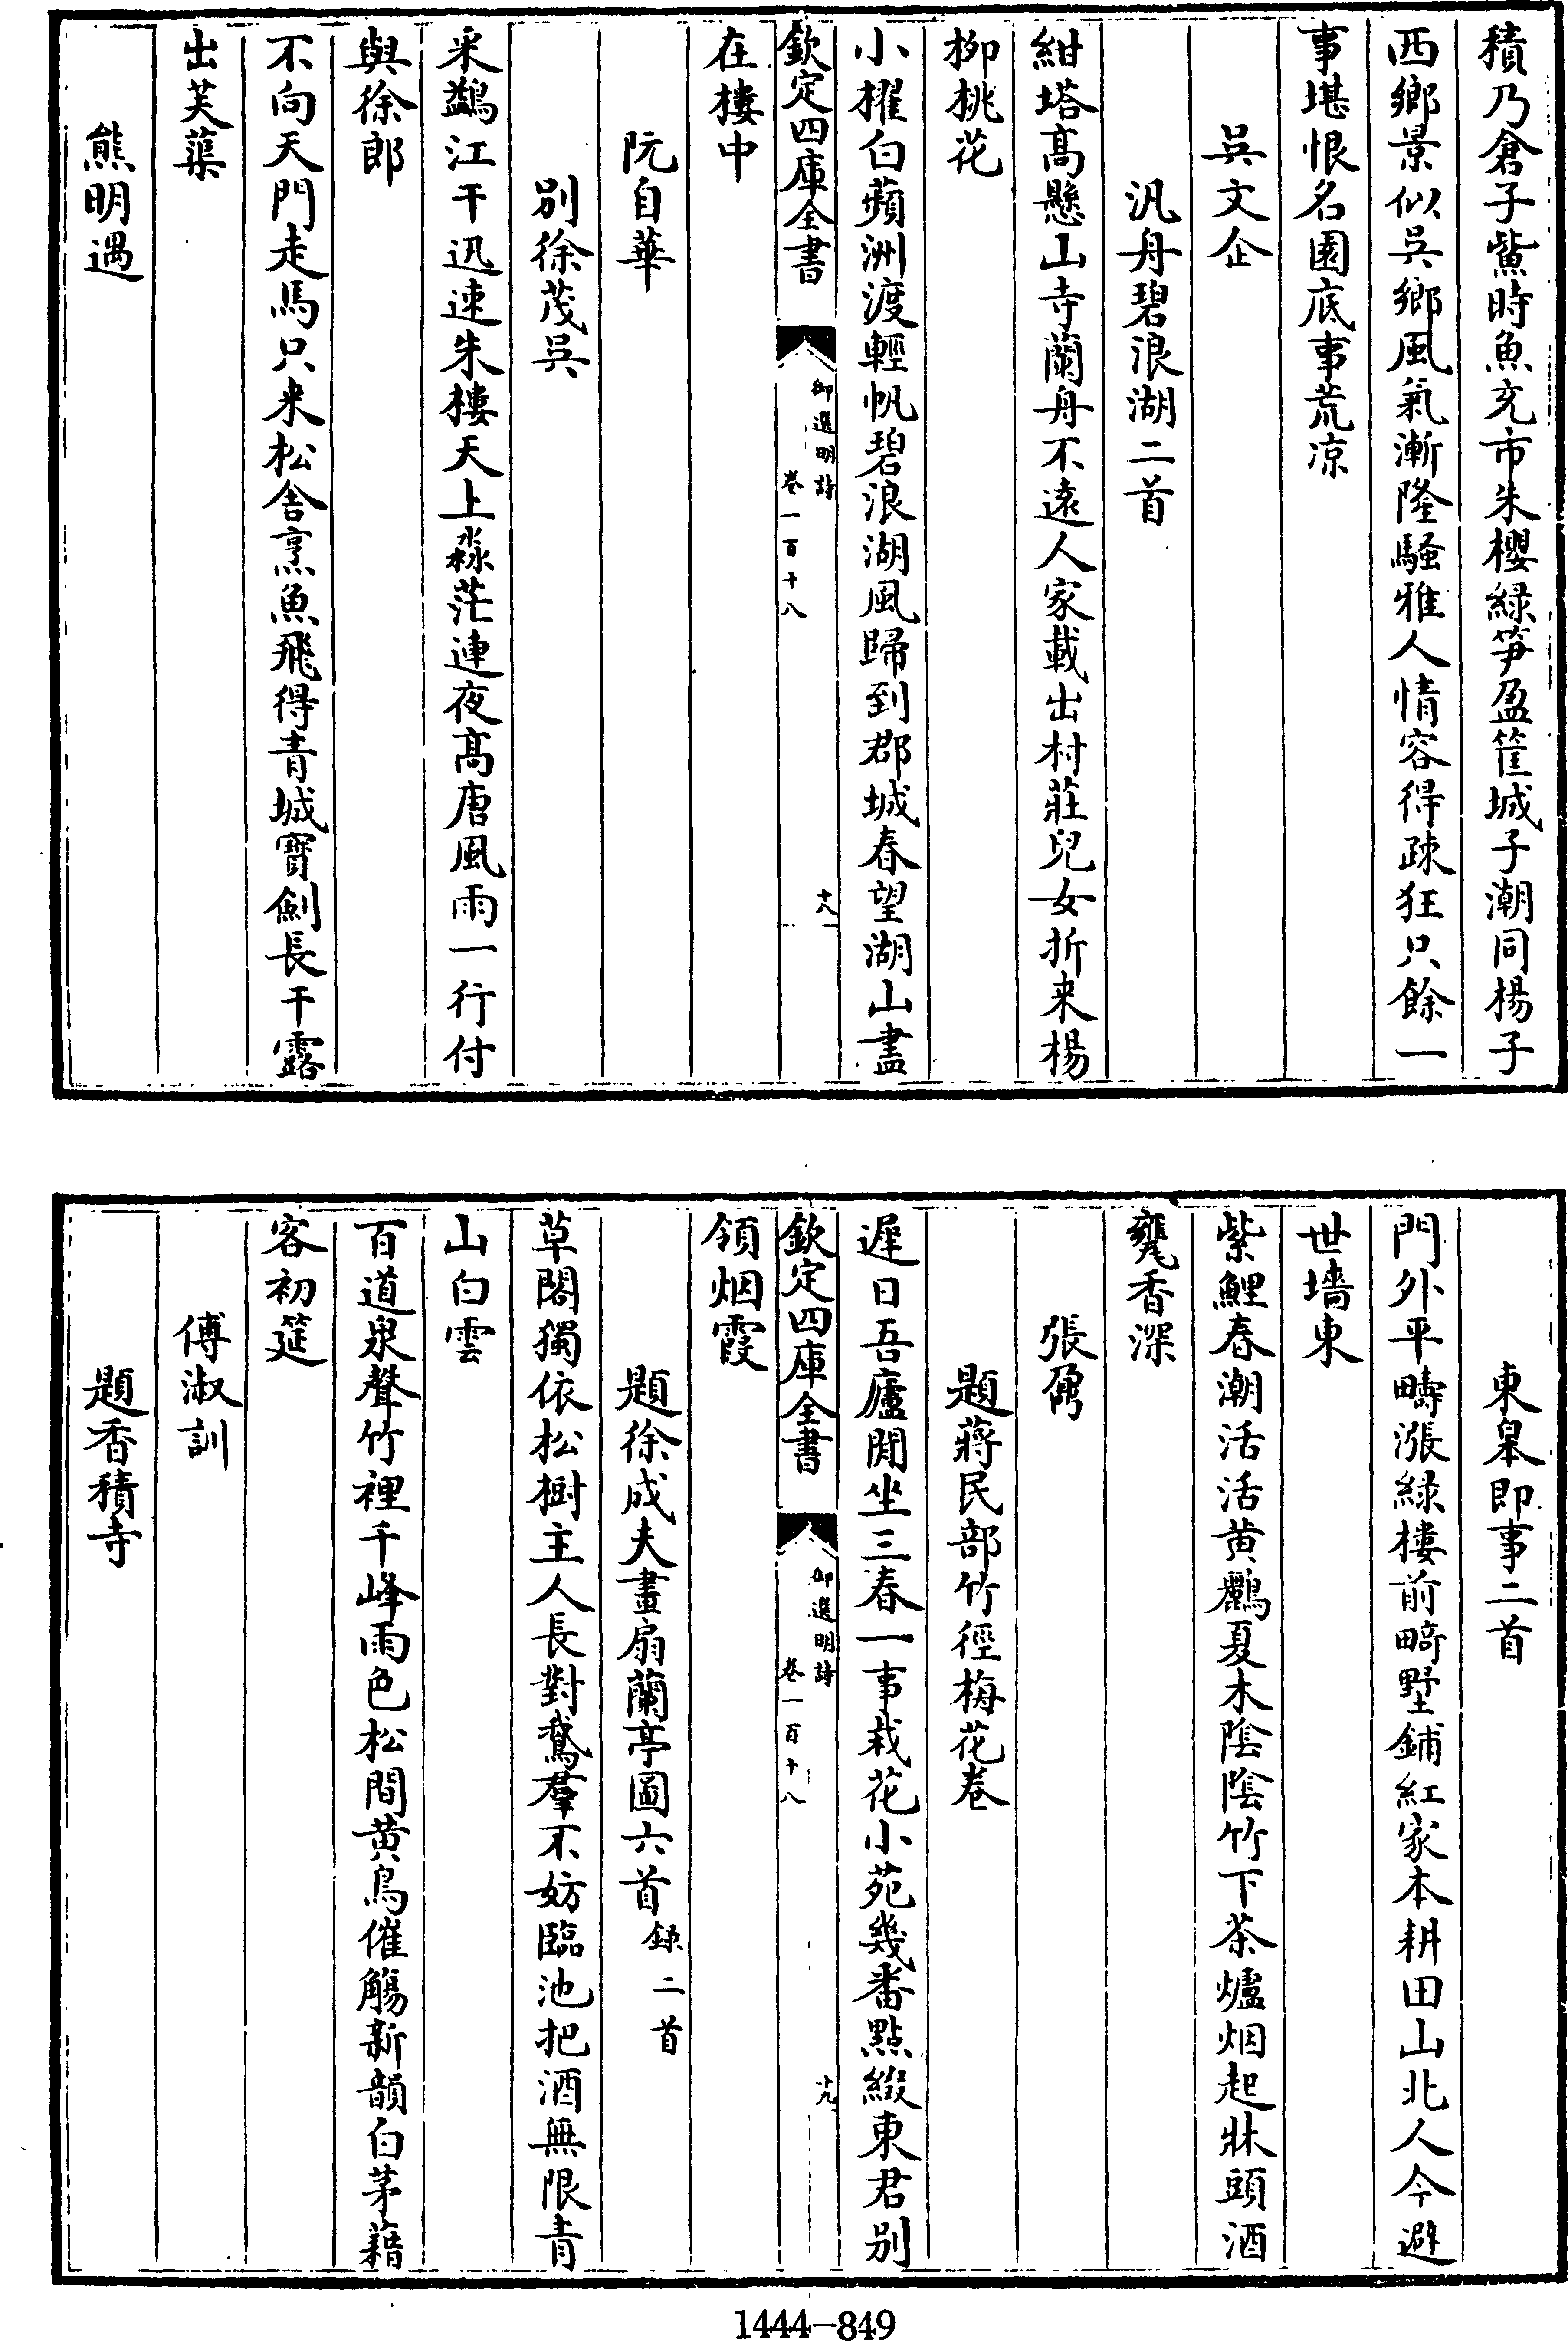 積乃倉子鮆時魚充市朱櫻緑笋盈筐城子潮同楊子
西鄉景似吳鄉風氣漸隆騷雅人情容得疎狂只餘一
事堪恨名園底事荒凉
吳文企
汎舟碧浪湖二首
紺塔髙懸山寺蘭舟不逺人家載出村莊兒女折来楊
柳桃花
小櫂白蘋洲渡輕帆碧浪湖風歸到郡城春望湖山盡
欽定四庫全書
御選明詩
卷一百十八
十八
在樓中
阮自華
别徐茂吳
采鷁江干迅速朱樓天上淼茫連夜髙唐風雨一行付
與徐郎
不向天門走馬只来松舎烹魚飛得青城寳劍長干露
出芙蕖
熊明遇
東臯即事二首
門外平疇漲緑樓前畸墅鋪紅家本耕田山北人今避
世墻東
紫鯉春潮活活黄鸝夏木隂隂竹下茶爐烟起牀頭酒
甕香深
張鼐
題蔣民部竹徑梅花巻
遲日吾廬閒坐三春一事栽花小苑幾番點綴東君别
欽定四庫全書
御選明詩
卷一百十八
十九
領烟霞
題徐成夫畫扇蘭亭圖六首録二首
草閣獨依松樹主人長對鵞羣不妨臨池把酒無限青
山白雲
百道泉聲竹裡千峰雨色松間黄鳥催觴新韻白茅藉
客初筵
傅淑訓
題香積寺
1444-849